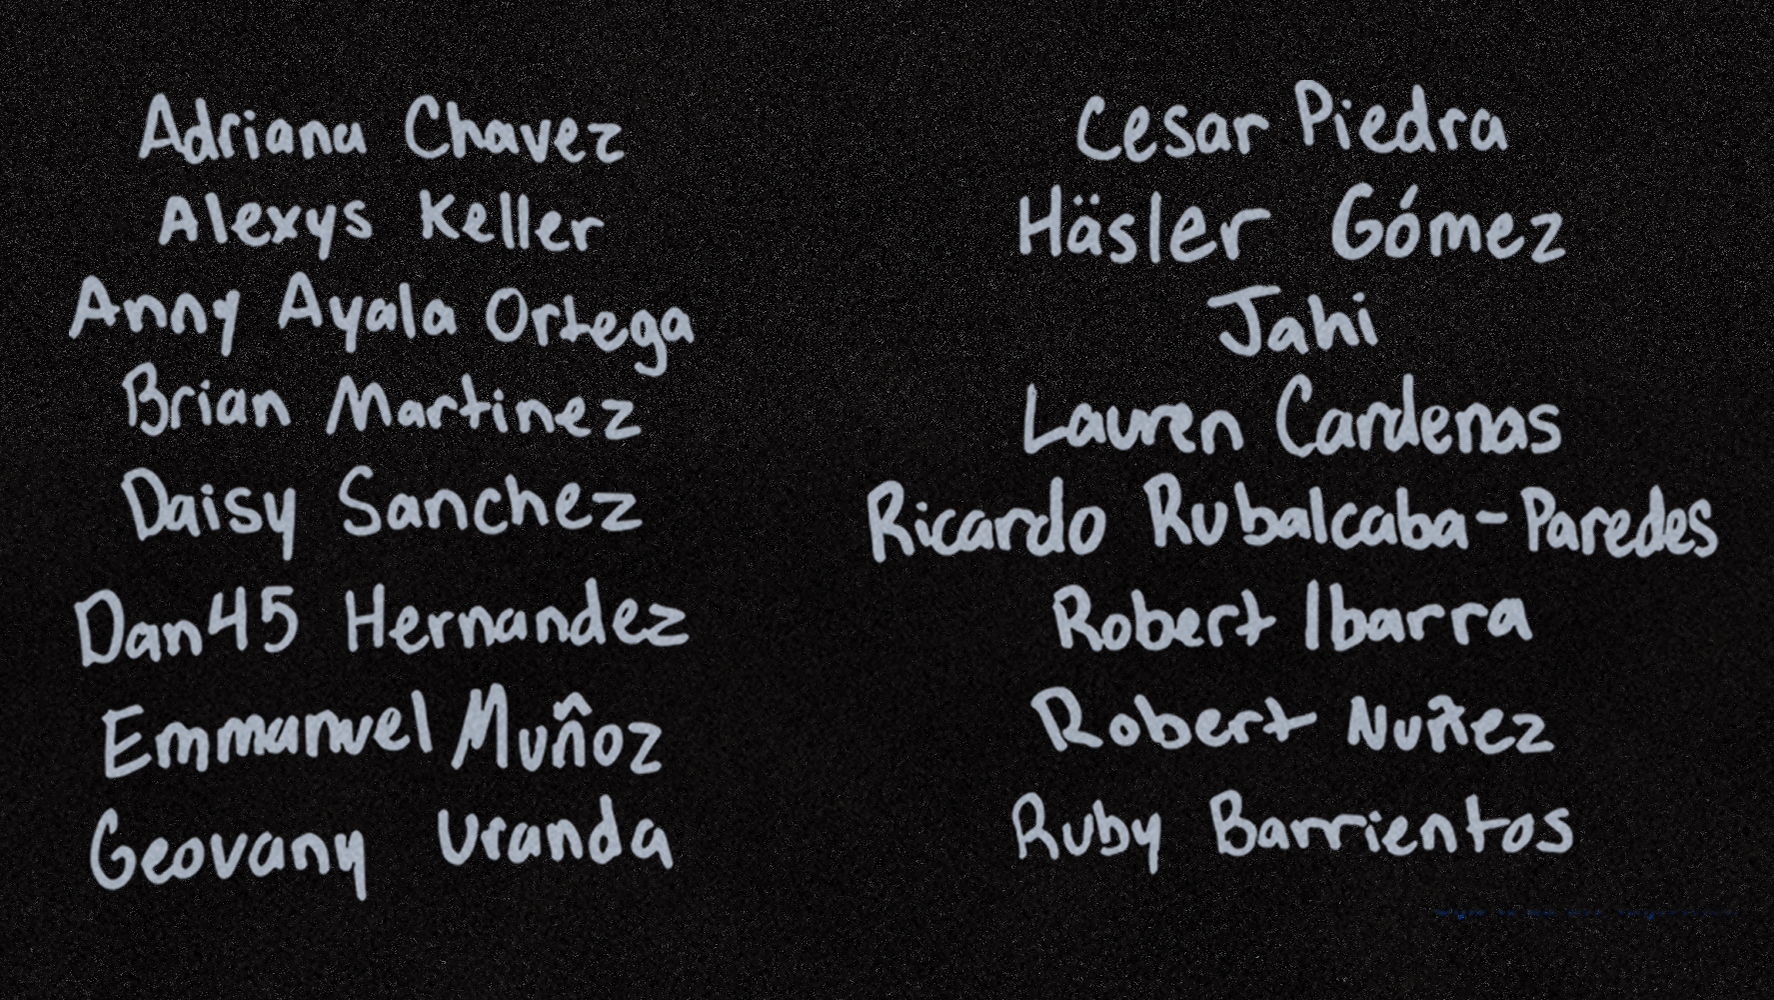 Adriana Chavez
Alexys Keller
Anny Ayala Ortega
Brian Martinez
Daisy Sanchez
Dan45 Hernandez
Emmanuel Muñoz
Geovany Uranda
Cesar Piedra
Häsler Gómez
Jahi
Lauren Cardenas
Ricardo Rubalcaba-Paredes
Robert Ibarra
Robert Nuñez
Ruby Barrientos